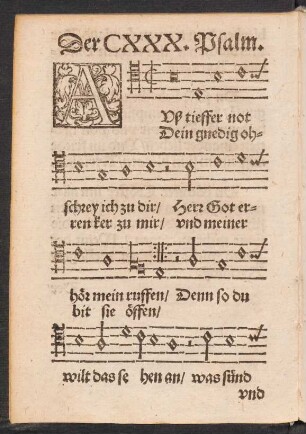 Der CXXX. Psalm.
AUß tieffer not
Dein gnedig oh-
schrey ich zu dir/ Herr Got er-
ren ker zu mir/ vnd meiner
hör mein ruffen/ Denn so du
bit sie öffen/
wilt das se hen an/ was sünd
vnd